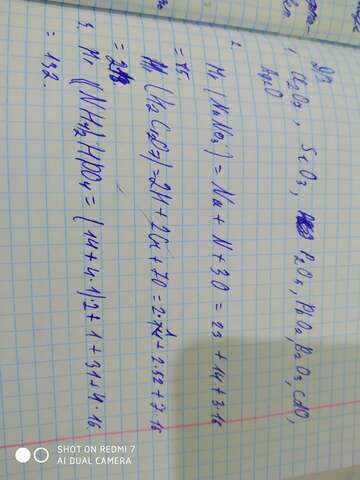 Д/з
1. Cl₂O₇, SeO₃, P₂O₅, PbO₂, B₂O₃, CdO,
Ag₂O
2. Mr (NaNO₃) = Na + N + 3O = 23 + 14 + 3·16
= 85
Mr (H₂Cr₂O₇) = 2H + 2Cr + 7O = 2·1 + 2·52 + 7·16
= 218
3. Mr ((NH₄)₂HPO₄) = (14 + 4·1)·2 + 1 + 31 + 4·16
= 132.
SHOT ON REDMI 7
AI DUAL CAMERA